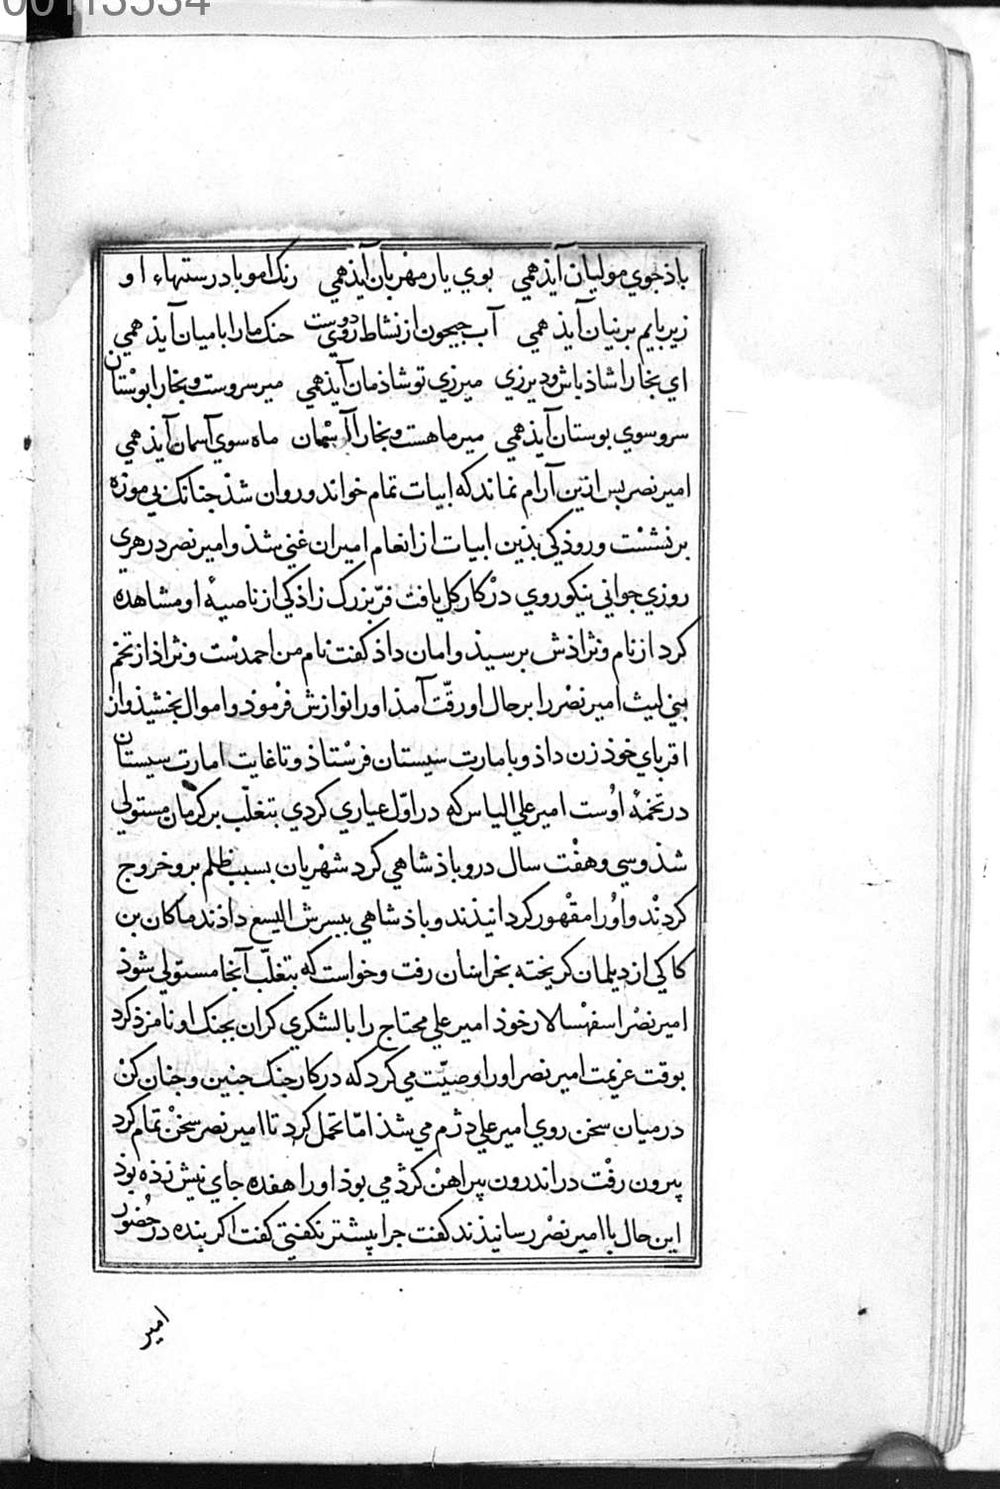 00113534
باذ جوي موليان آيذ همي بوي يار مهربان آيذ همي رنك امو با درستيهاء او
زير بايم برنيان آيذ همي آب جيحون از نشاط روي دوست خنك ما را با ميان آيذ همي
اي بخارا شاذ باش و دير زي مير زي تو شاذمان آيذ همي مير سروست و بخارا بوستان
سرو سوي بوستان آيذ همي مير ماهست و بخارا آسمان ماه سوي آسمان آيذ همي
امير نصر بس ازين آرام نماند كه ابيات تمام خواند و روان شذ جنانك بي موزه
بر نشست و روذكي بذين ابيات از انعام اميران غني شذ و امير نصر در هري
روزي جواني نيكو روي در كار كل يافت فرّ بزرك زاذكي از ناصيهٔ او مشاهده
كرد از نام و نژاذش برسيذ و امان داذ كفت نام من احمدست و نژاذ از تخم
بني ليث امير نصر را بر حال او رقّت آمذ او را نوازش فرموذ و اموال بخشيذ و از
اقرباي خوذ زن داذ و با مارت سيستان فرستاذ و تا غايت امارت سيستان
در تخمهٔ اوست امير علي الياس كه در اوّل عياري كردي بتغلّب بر كرمان مستولي
شذ و سي و هفت سال درو باذشاهي كرد شهريان بسبب ظلم برو خروج
كردند و او را مقهور كردانيذند و باذشاهي ببسرش اليسع داذند ماكان بن
كاكي از ديلمان كريخته بخراسان رفت و خواست كه بتغلّب آنجا مستولي شوذ
امير نصر اسفهسالار خوذ امير علي محتاج را با لشكري كران بجنك او نامزذ كرد
بوقت عزيمت امير نصر او را وصيّت مي كرد كه در كار جنك جنين و جنان كن
در ميان سخن روي امير علي دژم مي شذ امّا تحمل كرد تا امير نصر سخن تمام كرد
بيرون رفت در اندرون بيراهن كژدمي بوذ او را هفده جاي نيش زذه بوذ
اين حال با امير نصر رسانيذند كفت جرا بيشتر نكفتي كفت اكر بنده در حضور
امير